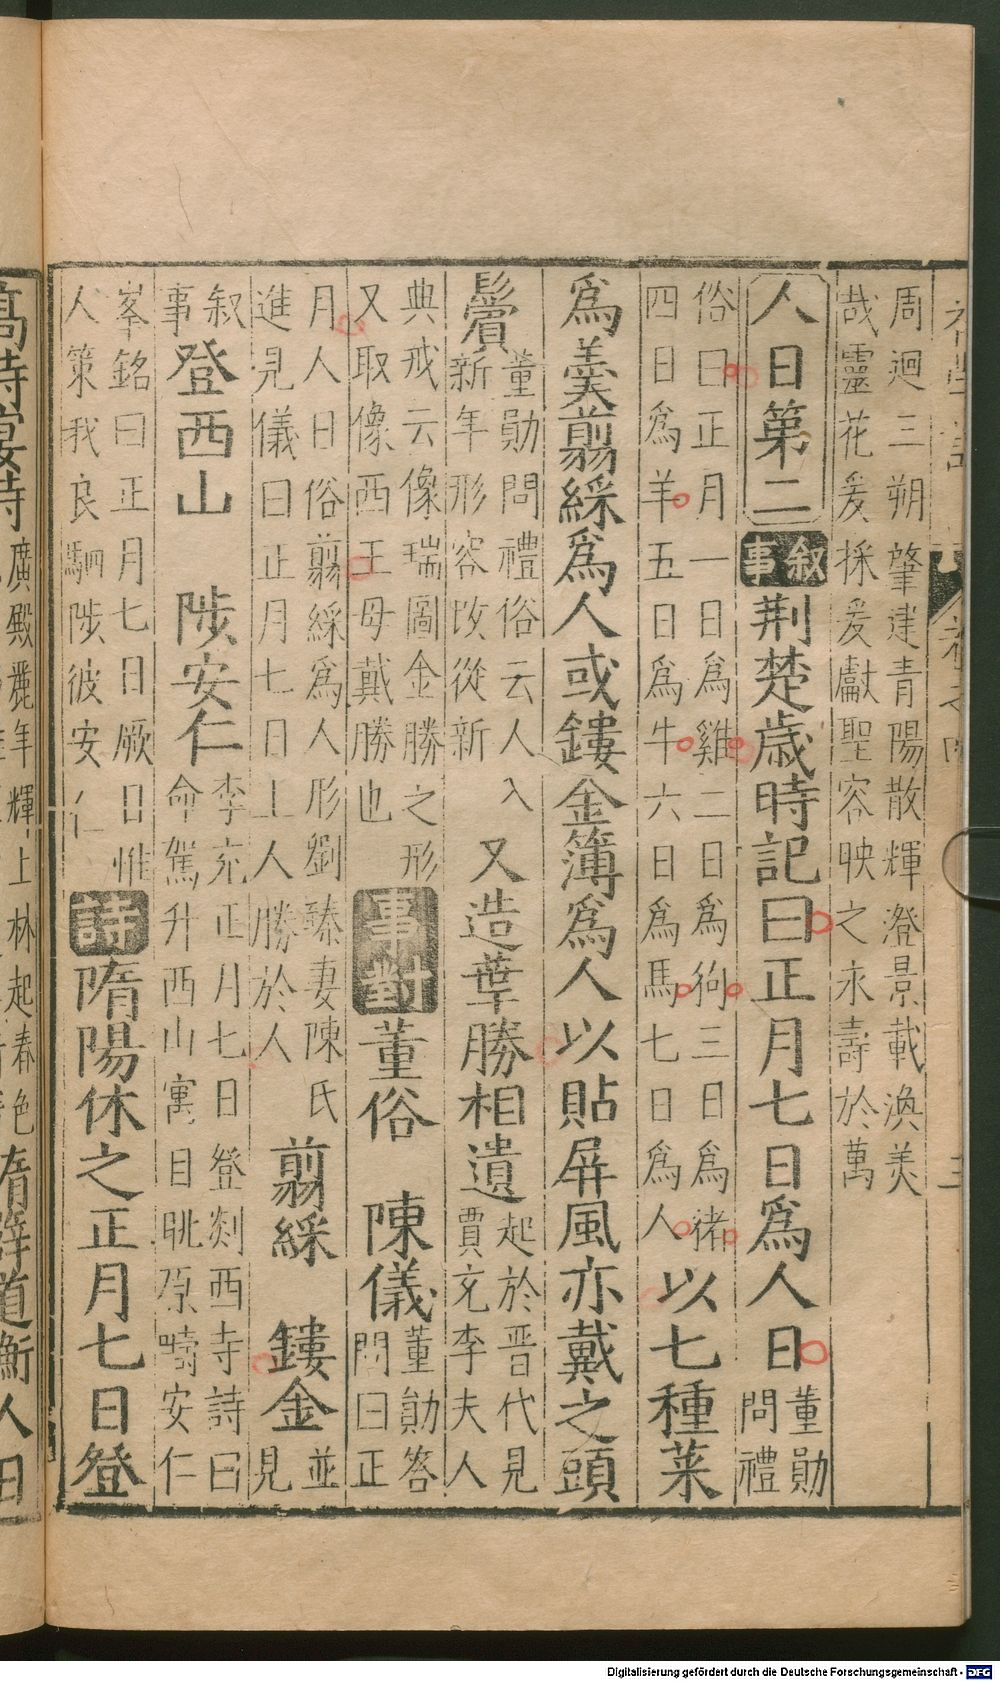 周迴三朔肇建青陽散輝澄景載渙美
哉靈花爰採爰獻聖容映之永壽於萬
人日第二
叙事
荆楚歲時記曰正月七日爲人日
董勛
問禮
俗曰正月一日爲雞二日爲狗三日爲猪
四日爲羊五日爲牛六日爲馬七日爲人
以七種菜
爲羹翦綵爲人或鏤金簿爲人以貼屏風亦戴之頭
鬢
董勛問禮俗云人入
新年形容改從新
又造華勝相遺
起於晋代見
賈充李夫人
典戒云像瑞圖金勝之形
又取像西王母戴勝也
事對
董俗 陳儀
董勛答
問曰正
月人日俗翦綵爲人形劉臻妻陳氏
進見儀曰正月七日上人勝於人
翦綵 鏤金
並
見
叙
事
登西山 陟安仁
李充正月七日登剡西寺詩曰
命駕升西山寓目眺原疇安仁
峯銘曰正月七日厥日惟
人策我良駟陟彼安仁
詩
隋陽休之正月七日登
高時宴詩
廣殿麗年輝上林起春色
隋薛道衡人日
Digitalisierung gefördert durch die Deutsche Forschungsgemeinschaft - DFG